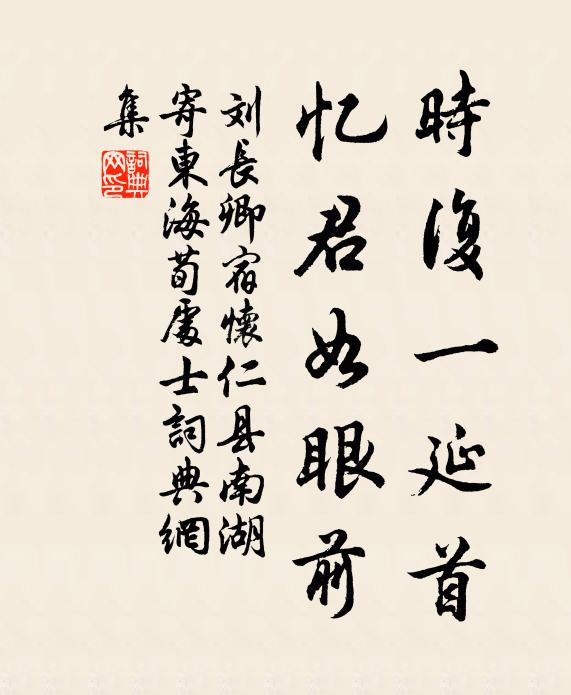 時復一延首
忆君如眼前
刘長卿宿懷仁县南湖
寄東海荀處士詞典網
集
詞典
网印